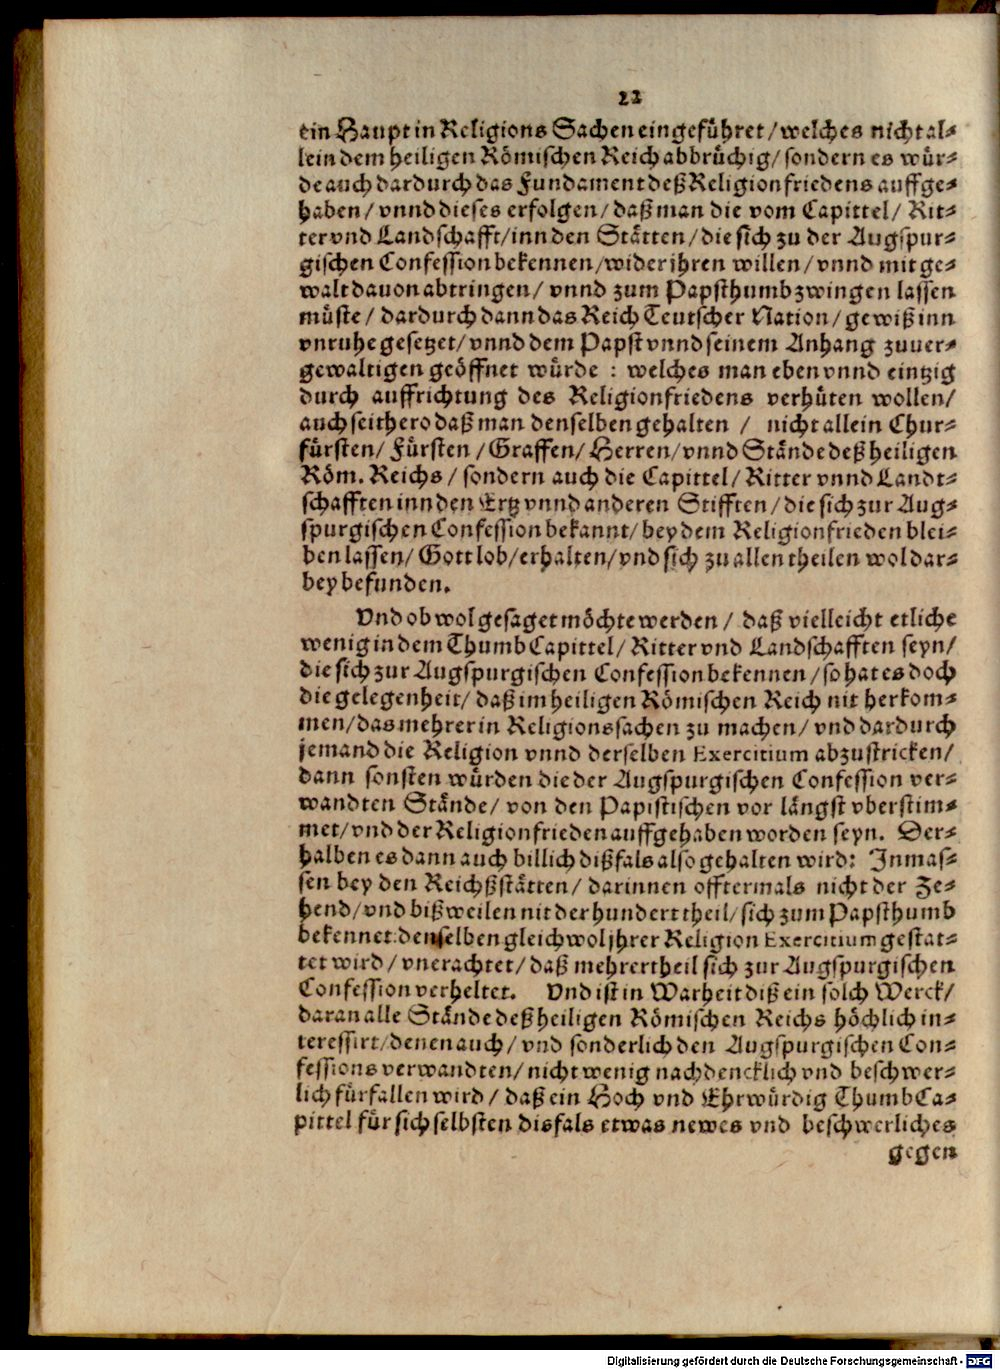 22
ein Haupt in Religions Sachen eingeführet/welches nicht al-
lein dem heiligen Römischen Reich abbrüchig/sondern es wür-
de auch dardurch das Fundament deß Religionfriedens auffge-
haben/vnnd dieses erfolgen/daß man die vom Capittel/Rit-
ter vnd Landschafft/inn den Stätten/die sich zu der Augspur-
gischen Confession bekennen/wider jhren willen/vnnd mit ge-
walt dauon abtringen/vnnd zum Papsthumb zwingen lassen
müste/dardurch dann das Reich Teutscher Nation/gewiß inn
vnruhe gesetzet/vnnd dem Papst vnnd seinem Anhang zuuer-
gewaltigen geöffnet würde : welches man eben vnnd eintzig
durch auffrichtung des Religionfriedens verhüten wollen/
auch seithero daß man denselben gehalten / nicht allein Chur-
fürsten/Fürsten/Graffen/Herren/vnnd Stände deß heiligen
Röm. Reichs/sondern auch die Capittel/Ritter vnnd Landt-
schafften inn den Ertz vnnd anderen Stifften/die sich zur Aug-
spurgischen Confession bekannt/bey dem Religionfrieden blei-
ben lassen/Gott lob/erhalten/vnd sich zu allen theilen wol dar-
bey befunden.
Vnd ob wol gesaget möchte werden/daß vielleicht etliche
wenig in dem Thumb Capittel/Ritter vnd Landschafften seyn/
die sich zur Augspurgischen Confession bekennen/so hat es doch
die gelegenheit/daß im heiligen Römischen Reich nit herkom-
men/das mehrer in Religionssachen zu machen/vnd dardurch
jemand die Religion vnnd derselben Exercitium abzustricken/
dann sonsten würden die der Augspurgischen Confession ver-
wandten Stände/von den Papistischen vor längst vberstim-
met/vnd der Religionfrieden auffgehaben worden seyn. Der-
halben es dann auch billich dißfals also gehalten wird: Inmas-
sen bey den Reichßstätten/darinnen offtermals nicht der Ze-
hend/vnd bißweilen nit der hundert theil/sich zum Papsthumb
bekennet denselben gleichwol jhrer Religion Exercitium gestat-
tet wird/vnerachtet/daß mehrertheil sich zur Augspurgischen
Confession verheltet. Vnd ist in Warheit diß ein solch Werck/
daran alle Stände deß heiligen Römischen Reichs höchlich in-
teressirt/denen auch/vnd sonderlich den Augspurgischen Con-
fessions verwandten/nicht wenig nachdencklich vnd beschwer-
lich fürfallen wird/daß ein Hoch vnd Ehrwürdig Thumb Ca-
pittel für sich selbsten disfals etwas newes vnd beschwerliches
gegen
Digitalisierung gefördert durch die Deutsche Forschungsgemeinschaft - DFG